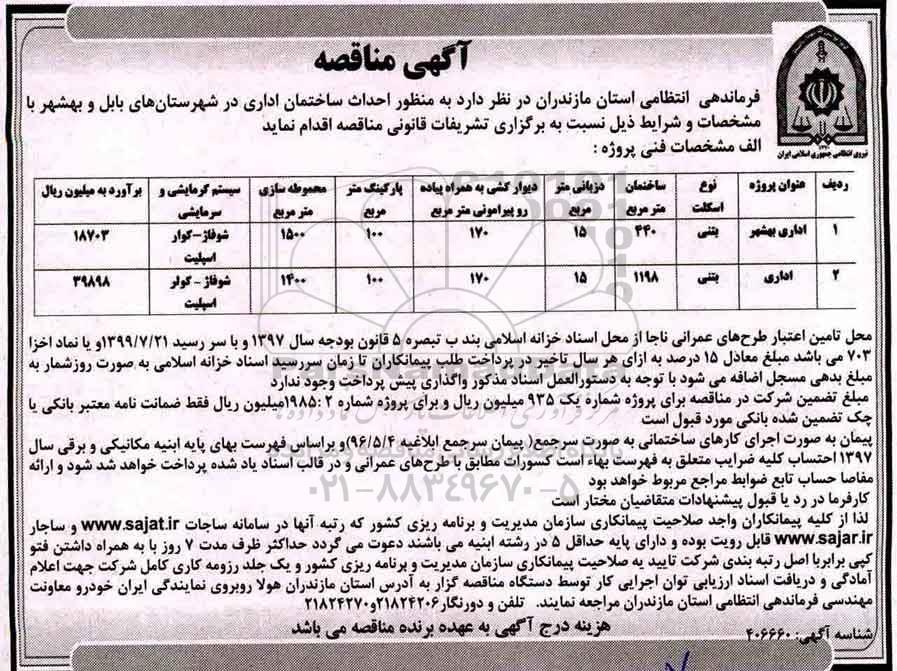 آگهی مناقصه
نیروی انتظامی جمهوری اسلامی ایران
فرماندهی انتظامی استان مازندران در نظر دارد به منظور احداث ساختمان اداری در شهرستان‌های بابل و بهشهر با
مشخصات و شرایط ذیل نسبت به برگزاری تشریفات قانونی مناقصه اقدام نماید
الف مشخصات فنی پروژه :
ردیف عنوان پروژه نوع اسکلت ساختمان متر مربع دژبانی متر مربع دیوار کشی به همراه پیاده رو پیرامونی متر مربع پارکینگ متر مربع محموطه سازی متر مربع سیستم گرمایشی و سرمایشی برآورد به میلیون ریال
۱ اداری بهشهر بتنی ۴۴۰ ۱۵ ۱۷۰ ۱۰۰ ۱۵۰۰ شوفاژ-کوار اسپلیت ۱۸۷۰۳
۲ اداری بتنی ۱۱۹۸ ۱۵ ۱۷۰ ۱۰۰ ۱۴۰۰ شوفاژ - کولر اسپلیت ۳۹۸۹۸
محل تامین اعتبار طرح‌های عمرانی ناجا از محل اسناد خزانه اسلامی بند ب تبصره ۵ قانون بودجه سال ۱۳۹۷ و با سر رسید ۱۳۹۹/۷/۲۱و یا نماد اخزا
۷۰۳ می باشد مبلغ معادل ۱۵ درصد به ازای هر سال تاخیر در پرداخت طلب پیمانکاران تا زمان سررسید اسناد خزانه اسلامی به صورت روزشمار به
مبلغ بدهی مسجل اضافه می شود با توجه به دستورالعمل اسناد مذکور واگذاری پیش پرداخت وجود ندارد
مبلغ تضمین شرکت در مناقصه برای پروژه شماره یک ۹۳۵ میلیون ریال و برای پروژه شماره ۲ :۱۹۸۵میلیون ریال فقط ضمانت نامه معتبر بانکی یا
چک تضمین شده بانکی مورد قبول است
پیمان به صورت اجرای کارهای ساختمانی به صورت سرجمع( پیمان سرجمع ابلاغیه ۹۶/۵/۴)و براساس فهرست بهای پایه ابنیه مکانیکی و برقی سال
۱۳۹۷ احتساب کلیه ضرایب متعلق به فهرست بهاء است کسورات مطابق با طرح‌های عمرانی و در قالب اسناد یاد شده پرداخت خواهد شد شود و ارائه
مفاصا حساب تابع ضوابط مراجع مربوط خواهد بود
کارفرما در رد یا قبول پیشنهادات متقاضیان مختار است
لذا از کلیه پیمانکاران واجد صلاحیت پیمانکاری سازمان مدیریت و برنامه ریزی کشور که رتبه آنها در سامانه ساجات www.sajat.ir و ساجار
www.sajar.ir قابل رویت بوده و دارای پایه حداقل ۵ در رشته ابنیه می باشند دعوت می گردد حداکثر ظرف مدت ۷ روز با به همراه داشتن فتو
کپی برابربا اصل رتبه بندی شرکت تایید یه صلاحیت پیمانکاری سازمان مدیریت و برنامه ریزی کشور و یک جلد رزومه کاری کامل شرکت جهت اعلام
آمادگی و دریافت اسناد ارزیابی توان اجرایی کار توسط دستگاه مناقصه گزار به آدرس استان مازندران هولا روبروی نمایندگی ایران خودرو معاونت
مهندسی فرماندهی انتظامی استان مازندران مراجعه نمایند. تلفن و دورنگار۲۱۸۲۴۲۰۶و۲۱۸۲۴۲۷۰
هزینه درج آگهی به عهده برنده مناقصه می باشد
شناسه آگهی: ۴۰۶۶۶۰
۰۲۱-۸۸۳۴۹۶۷۰-۵